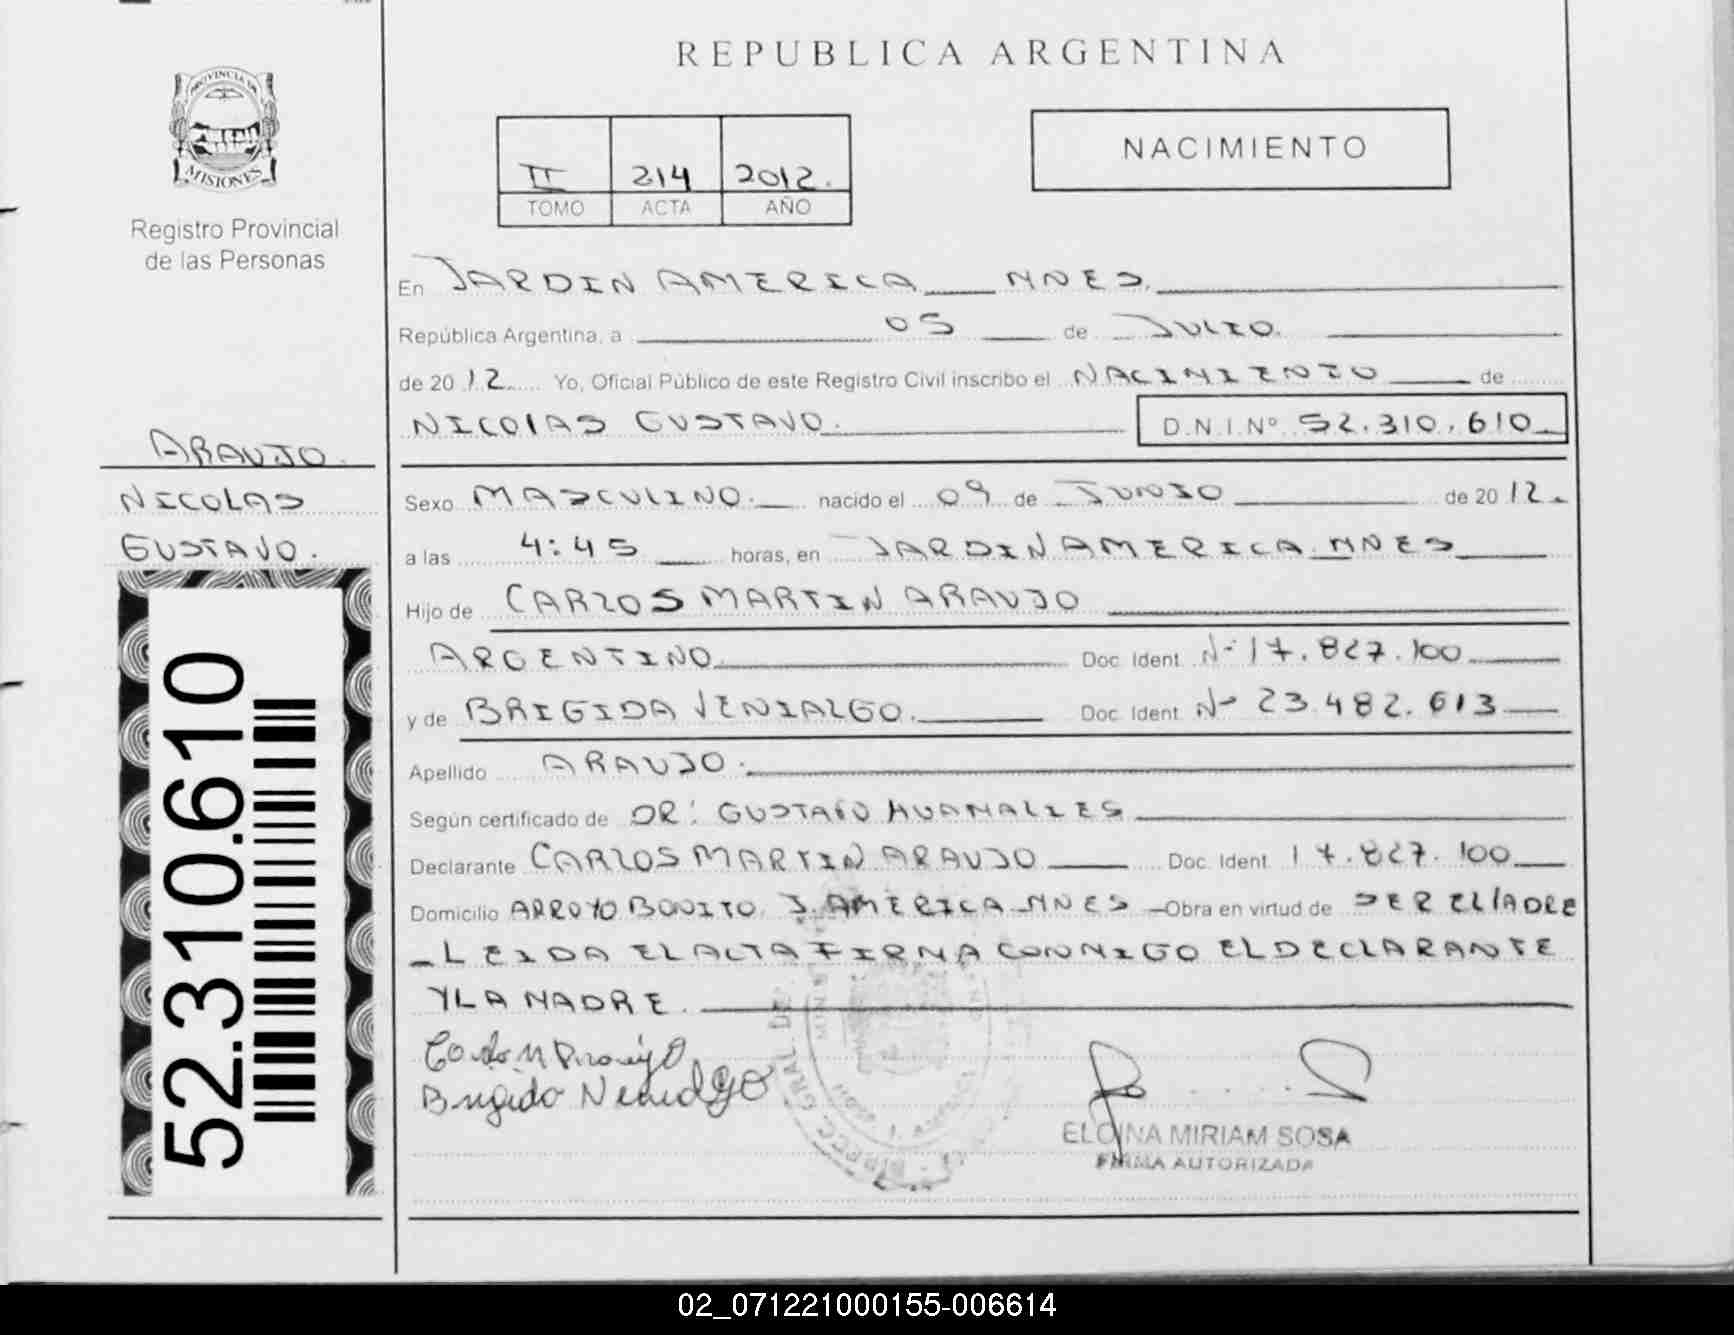 REPUBLICA ARGENTINA
PROVINCIA DE
MISIONES
Registro Provincial
de las Personas
II 214 2012.
TOMO ACTA AÑO
NACIMIENTO
En JARDIN AMERICA MNES.
República Argentina, a 05 de JULIO.
de 2012 Yo, Oficial Público de este Registro Civil inscribo el NACIMIENTO de
NICOLAS GUSTAVO. D.N.I.Nº 52.310.610
ARAUJO.
NICOLAS
GUSTAVO.
52.310.610
Sexo MASCULINO. nacido el 09 de JUNIO de 2012.
a las 4:45 horas, en JARDIN AMERICA. MNES
Hijo de CARLOS MARTIN ARAUJO
ARGENTINO Doc. Ident. Nº 17.827.100
y de BRIGIDA VENIALGO. Doc. Ident. Nº 23.482.613
Apellido ARAUJO.
Según certificado de DR: GUSTAVO HUAMALLES
Declarante CARLOS MARTIN ARAUJO Doc. Ident. 17.827.100
Domicilio ARROYO BONITO. J. AMERICA MNES Obra en virtud de SER EL PADRE
LEIDA EL ACTA FIRMA CONMIGO EL DECLARANTE
Y LA MADRE.
ELOINA MIRIAM SOSA
FIRMA AUTORIZADA
02_071221000155-006614